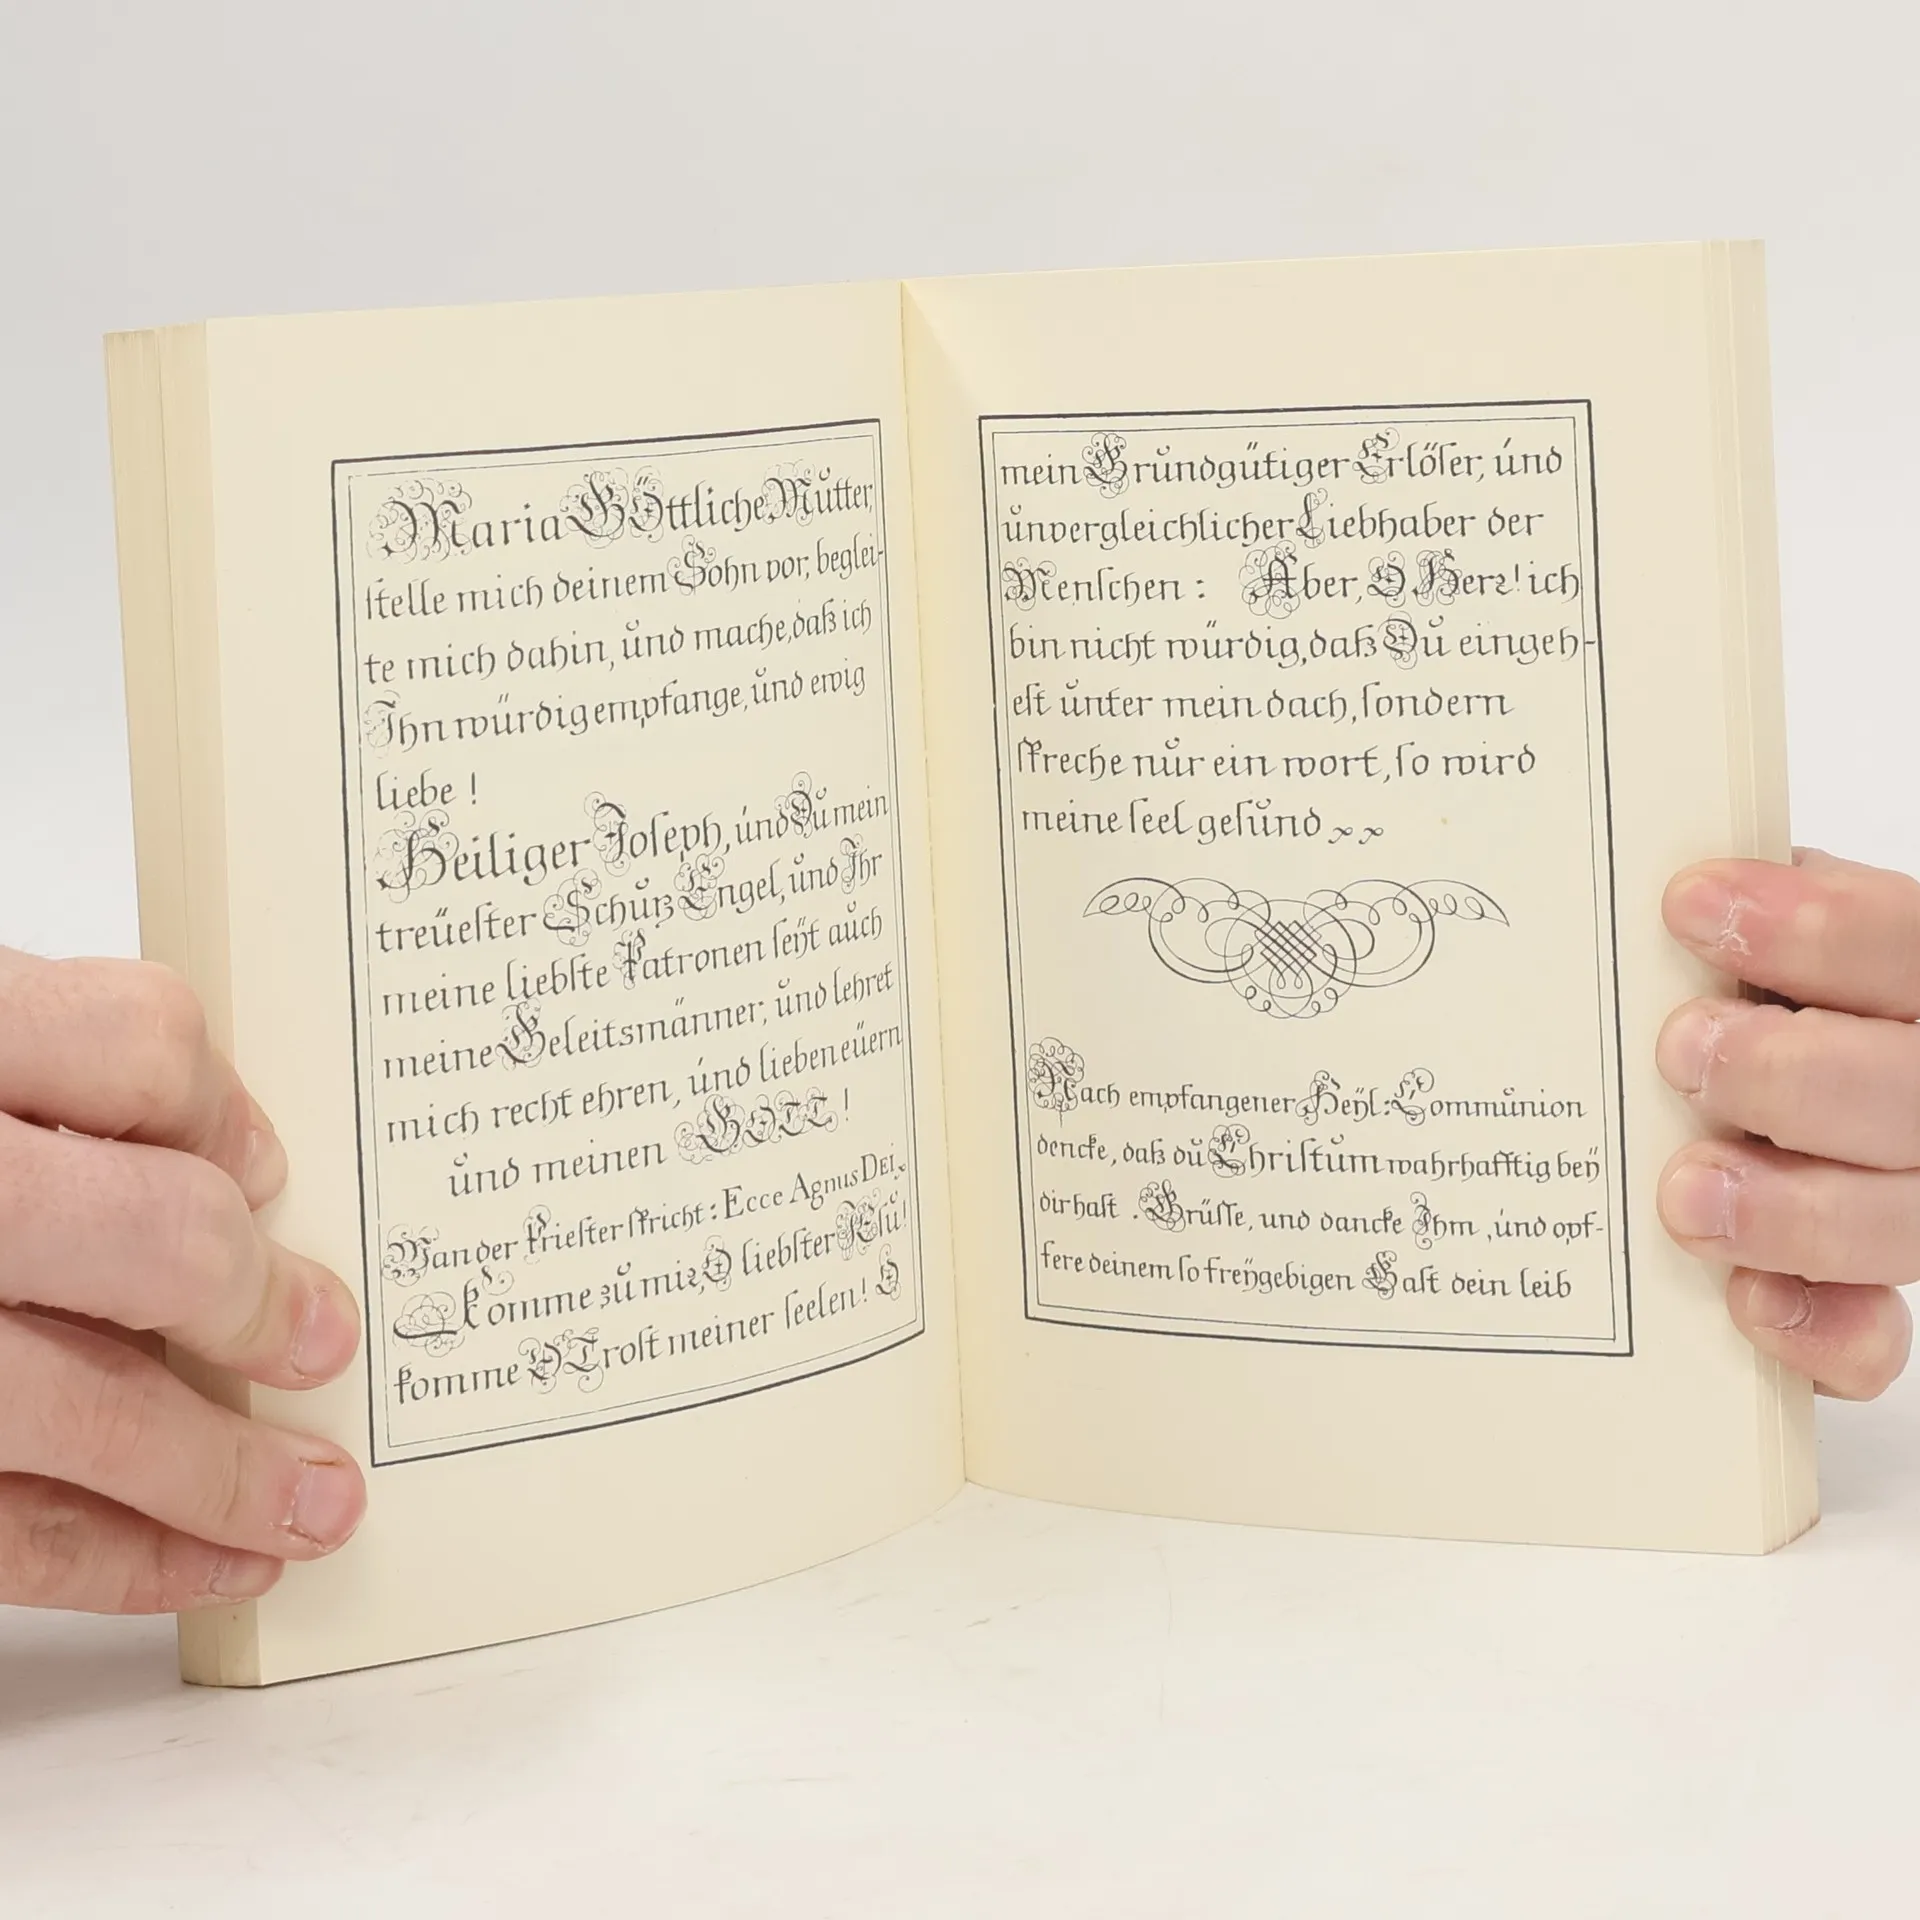 Maria GÖttliche Mŭtter,
ſtelle mich deinem Sohn vor, beglei-
te mich dahin, ŭnd mache, daß ich
Ihn würdig empfange, ŭnd ewig
liebe !
Heiliger Joſeph, ŭnd Dŭ mein
treüeſter Schŭtz Engel, ŭnd Ihr
meine liebſte Patronen ſeÿt aŭch
meine Geleitsmänner; ŭnd lehret
mich recht ehren, ŭnd lieben eüern
ŭnd meinen GOTT !
Wan der Prieſter ſpricht : Ecce Agnus DEI.
Komme zŭ mir, O liebſter JEſŭ!
komme O Troſt meiner ſeelen! O
mein Grŭndgütiger Erlöſer, ŭnd
ŭnvergleichlicher Liebhaber der
Menſchen : Aber, O Herr! ich
bin nicht würdig, daß Dŭ eingeh-
eſt ŭnter mein dach, ſondern
ſpreche nŭr ein wort, ſo wird
meine ſeel geſŭnd
Nach empfangener Heÿl: Commŭnion
dencke, daß dŭ Chriſtŭm wahrhafftig beÿ
dir haſt . Grüſſe, und dancke Ihm , ŭnd opf-
fere deinem ſo freÿgebigen Gaſt dein leib